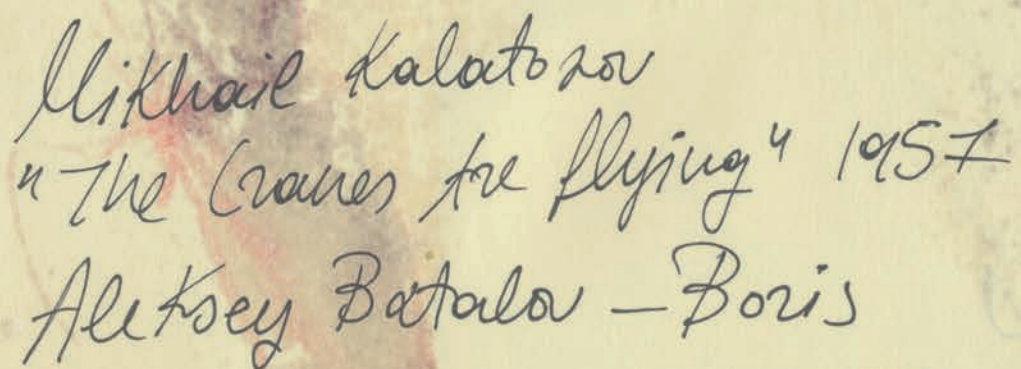 Mikhail Kalatozov
"The Cranes Are flying" 1957
Aleksey Batalov – Boris